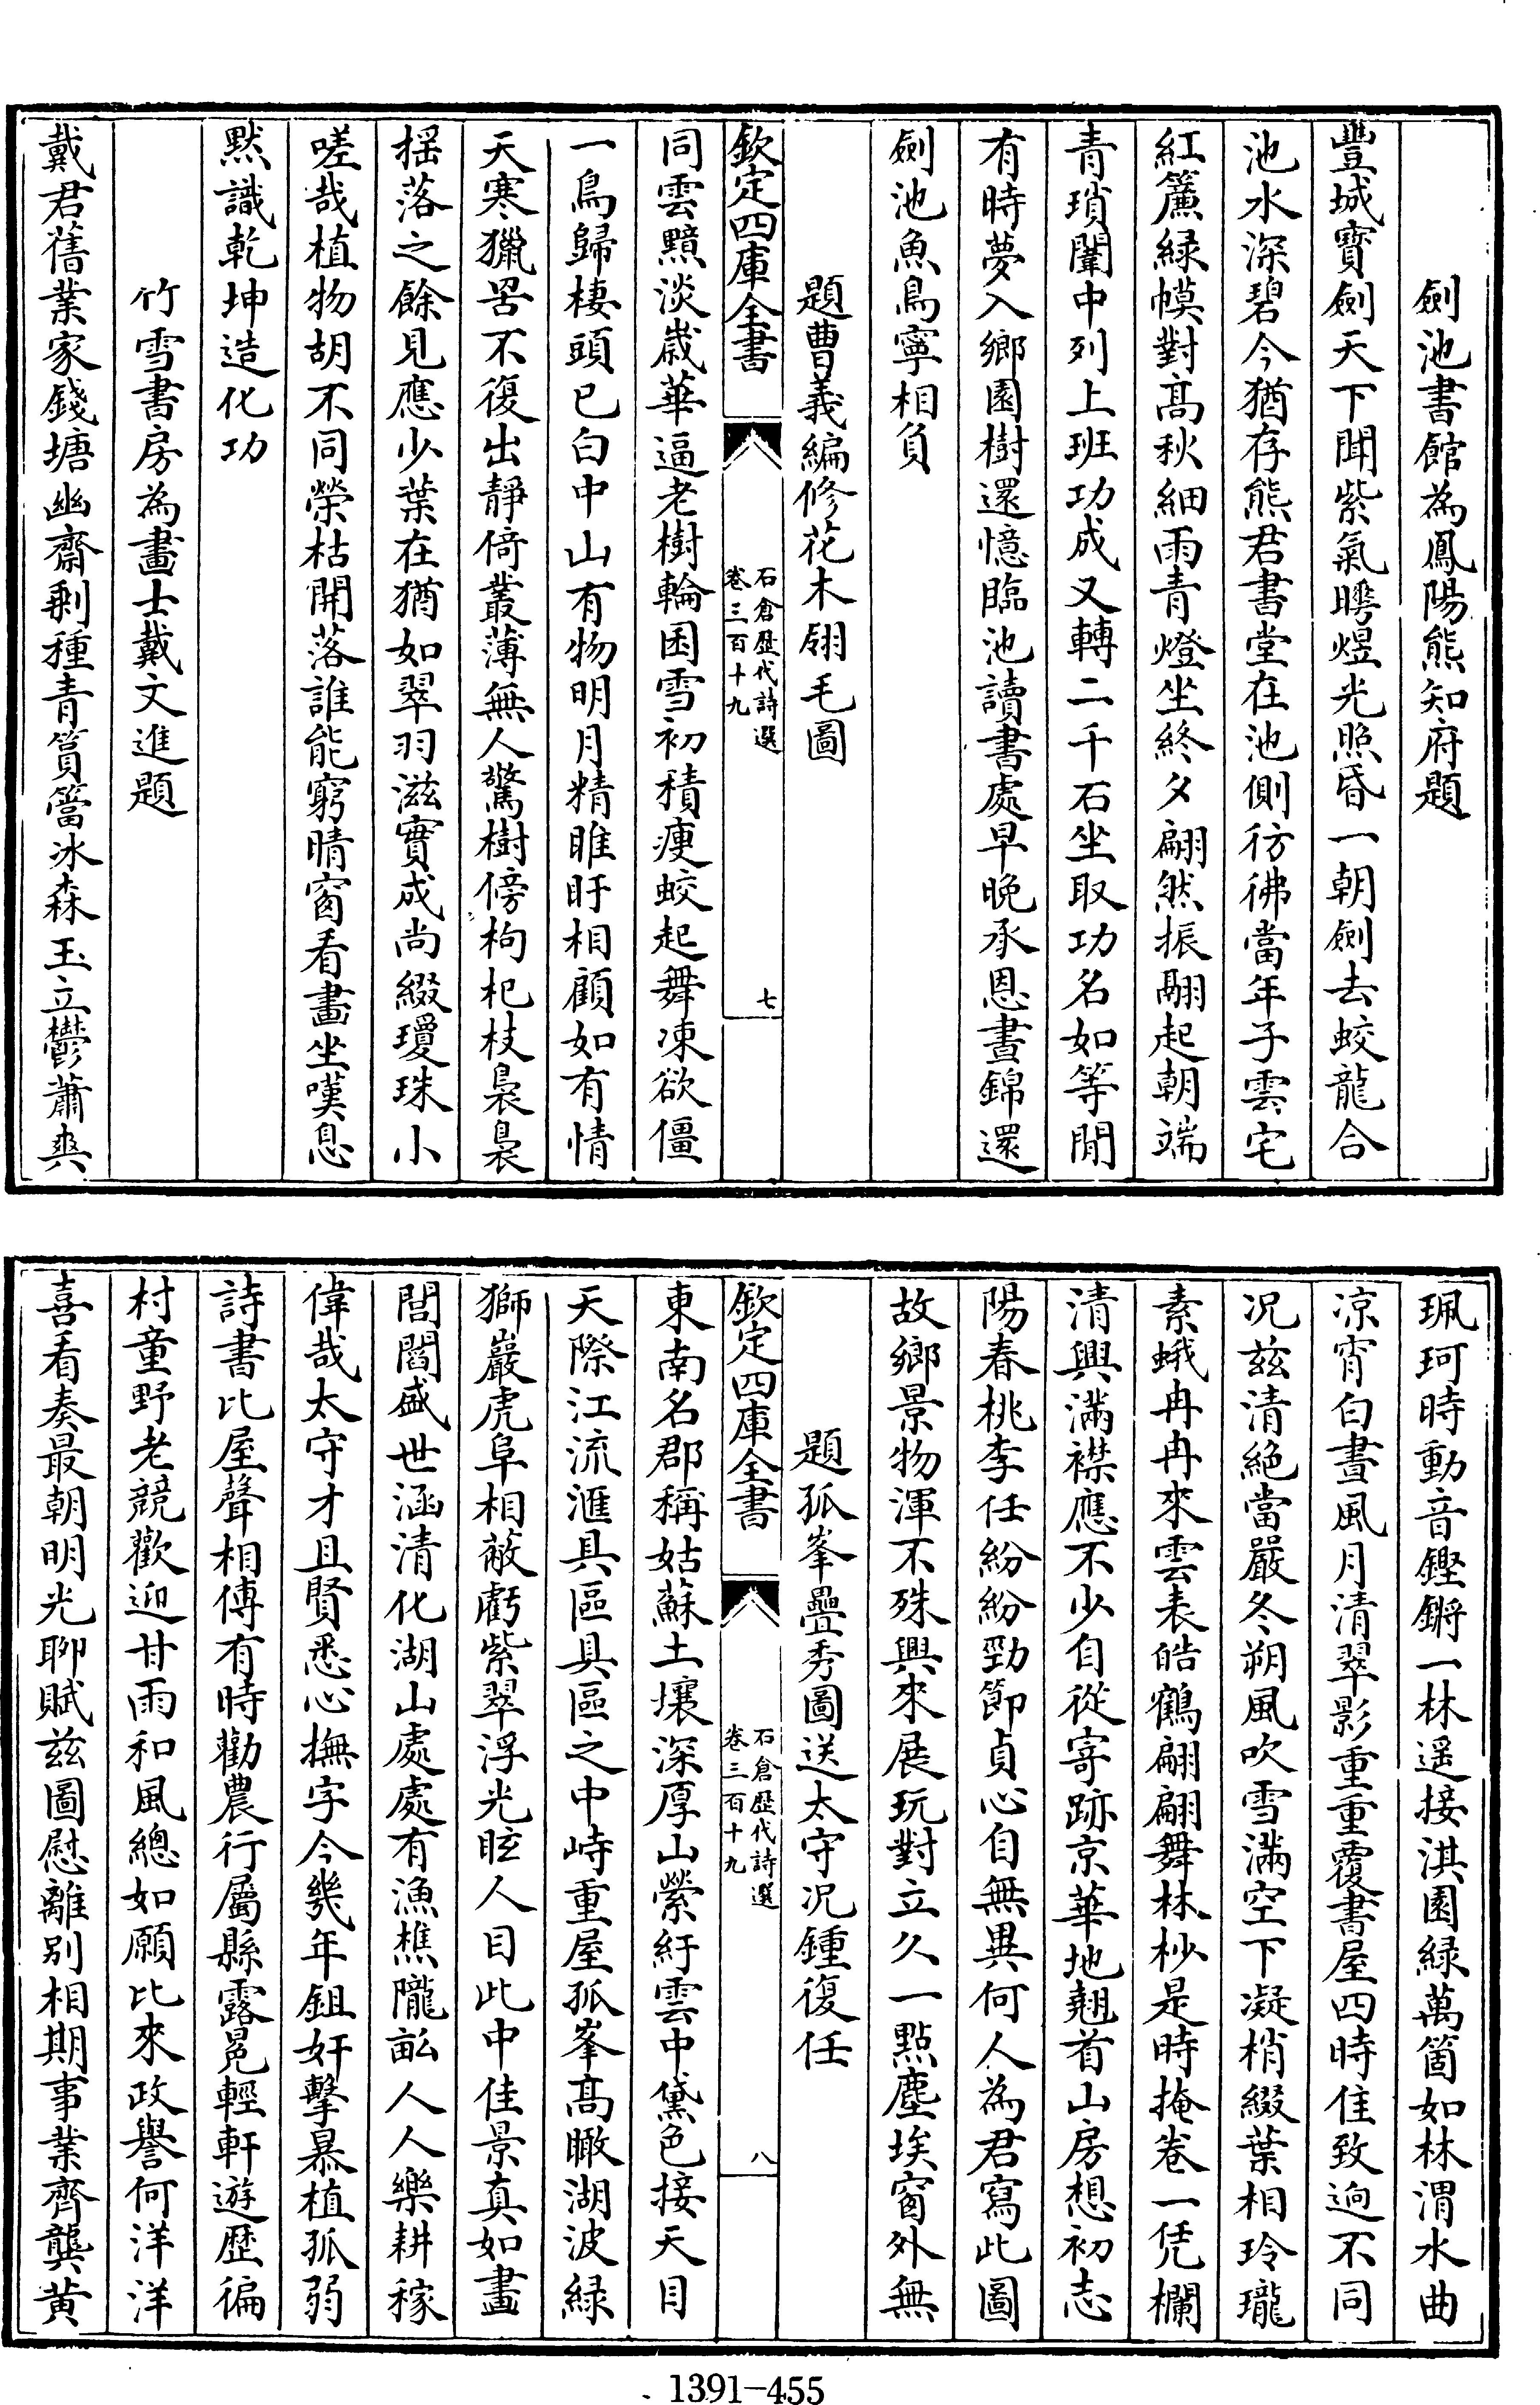 劍池書館為鳳陽熊知府題
豐城寳劍天下聞紫氣曄煜光照昏一朝劍去蛟龍合
池水深碧今猶存熊君書堂在池側彷彿當年子雲宅
紅簾緑幙對髙秋細雨青燈坐終夕翩然振翮起朝端
青瑣闈中列上班功成又轉二千石坐取功名如等閒
有時夢入鄉園樹還憶臨池讀書處早晚承恩晝錦還
劍池魚鳥寧相負
題曹義編修花木翎毛圖
欽定四庫全書
石倉歴代詩選
卷三百十九
七
同雲黯淡歳華逼老樹輪囷雪初積瘦蛟起舞凍欲僵
一鳥歸棲頭已白中山有物明月精睢盱相顧如有情
天寒獵罟不復出靜倚叢薄無人驚樹傍枸杞枝裊裊
揺落之餘見應少葉在猶如翠羽滋實成尚綴瓊珠小
嗟哉植物胡不同榮枯開落誰能窮晴窗看畫坐嘆息
黙識乾坤造化功
竹雪書房為畫士戴文進題
戴君舊業家錢塘幽齋剩種青篔簹冰森玉立鬱蕭爽
珮珂時動音鏗鏘一林遥接淇園緑萬箇如林渭水曲
凉宵白晝風月清翠影重重覆書屋四時佳致逈不同
况兹清絶當嚴冬朔風吹雪滿空下凝梢綴葉相玲瓏
素蛾冉冉來雲表皓鶴翩翩舞林杪是時掩卷一凭欄
清興滿襟應不少自從寄跡京華地翹首山房想初志
陽春桃李任紛紛勁節貞心自無異何人為君寫此圖
故鄉景物渾不殊興來展玩對立久一點塵埃窗外無
題孤峯疊秀圖送太守况鍾復任
欽定四庫全書
石倉歴代詩選
卷三百十九
八
東南名郡稱姑蘇土壤深厚山縈紆雲中黛色接天目
天際江流滙具區具區之中峙重屋孤峯髙瞰湖波緑
獅巖虎阜相蔽虧紫翠浮光眩人目此中佳景真如畫
閭閻盛世涵清化湖山處處有漁樵隴畝人人樂耕稼
偉哉太守才且賢悉心撫字今幾年鉏奸擊暴植孤弱
詩書比屋聲相傳有時勸農行屬縣露冕輕軒遊歴徧
村童野老競歡迎甘雨和風總如願比來政譽何洋洋
喜看奏最朝明光聊賦兹圖慰離别相期事業齊龔黄
1391-455